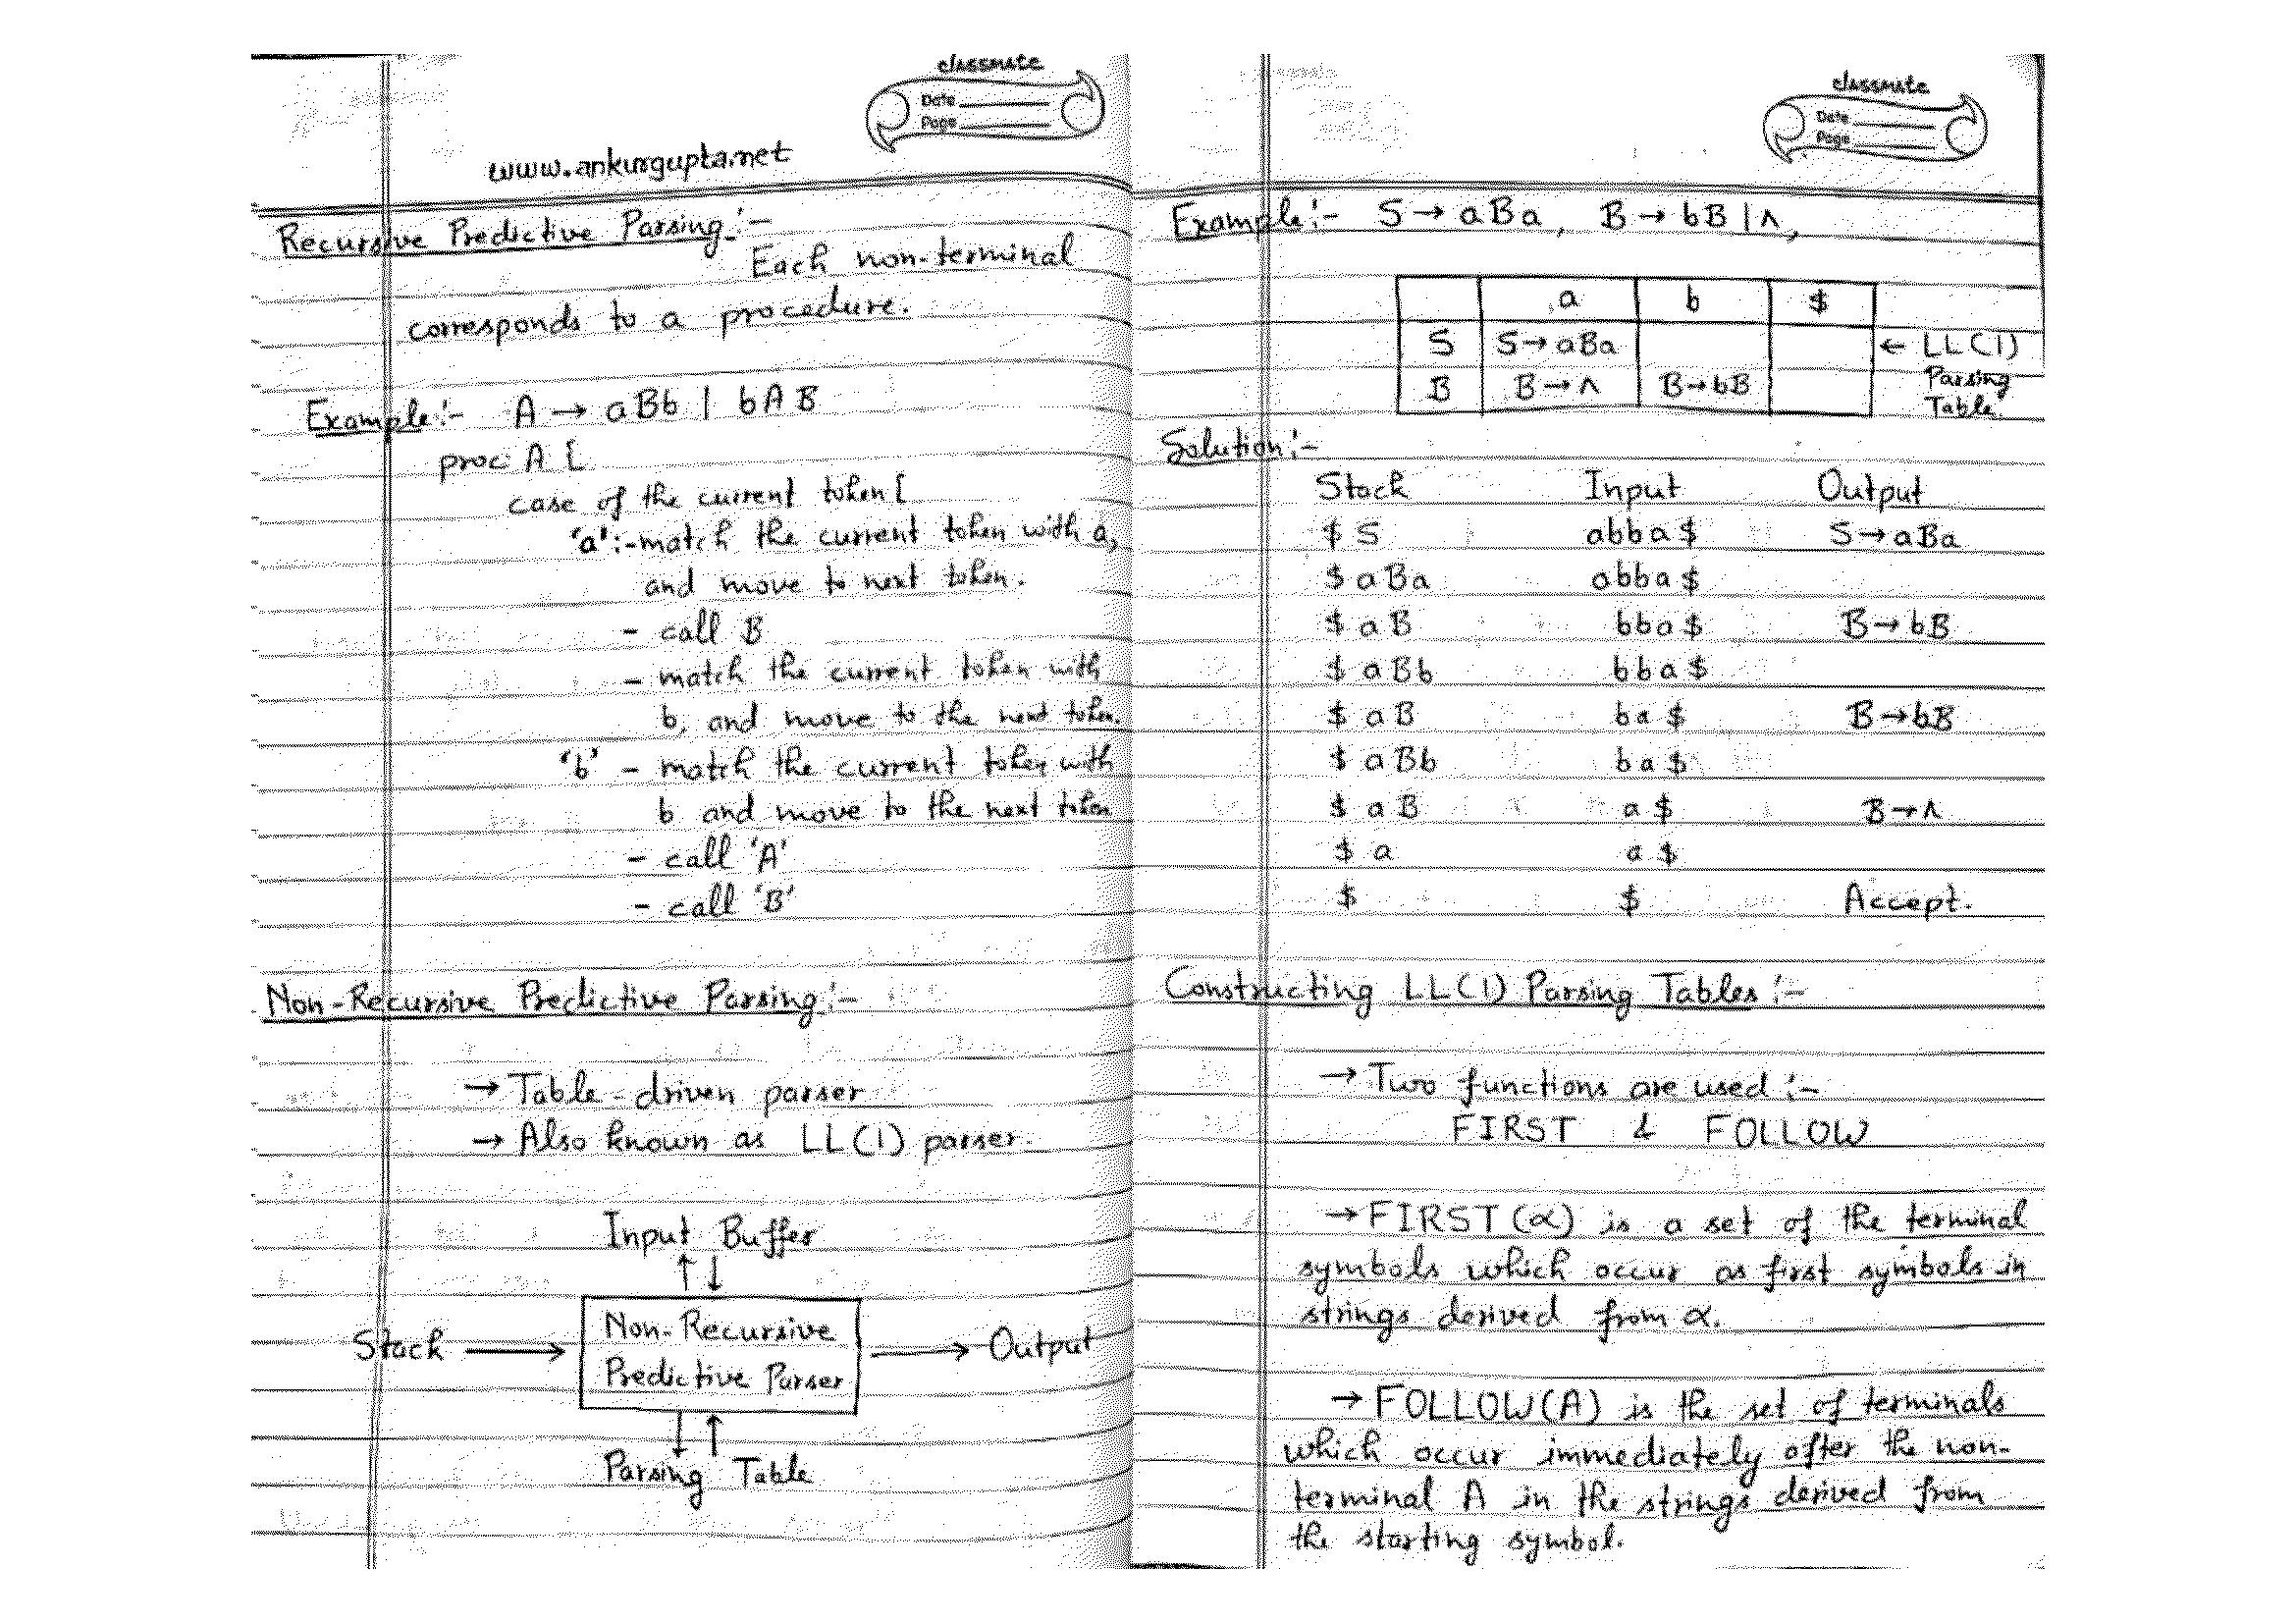 classmate
Date
Page
www.ankurgupta.net
Recursive Predictive Parsing :-
Each non-terminal
corresponds to a procedure.
Example:- A → aBb | bAB
proc A {
case of the current token {
'a':- match the current token with a,
and move to next token.
- call B
- match the current token with
b, and move to the next token.
'b' - match the current token with
b and move to the next token
- call 'A'
- call 'B'
Non-Recursive Predictive Parsing :-
→ Table-driven parser
→ Also known as LL(1) parser.
Input Buffer
↑ ↓
Stack → Non-Recursive Predictive Parser → Output
↓ ↑
Parsing Table
classmate
Date
Page
Example:- S → aBa, B → bB | ∧,
a b $
S S→aBa ← LL(1)
B B→∧ B→bB Parsing
Table
Solution:-
Stack Input Output
$ S abba $ S→aBa
$ aBa abba $
$ aB bba $ B→bB
$ aBb bba $
$ aB ba $ B→bB
$ aBb ba $
$ aB a $ B→∧
$ a a $
$ $ Accept.
Constructing LL(1) Parsing Tables :-
→ Two functions are used :-
FIRST & FOLLOW
→ FIRST(α) is a set of the terminal
symbols which occur as first symbols in
strings derived from α.
→ FOLLOW(A) is the set of terminals
which occur immediately after the non-
terminal A in the strings derived from
the starting symbol.